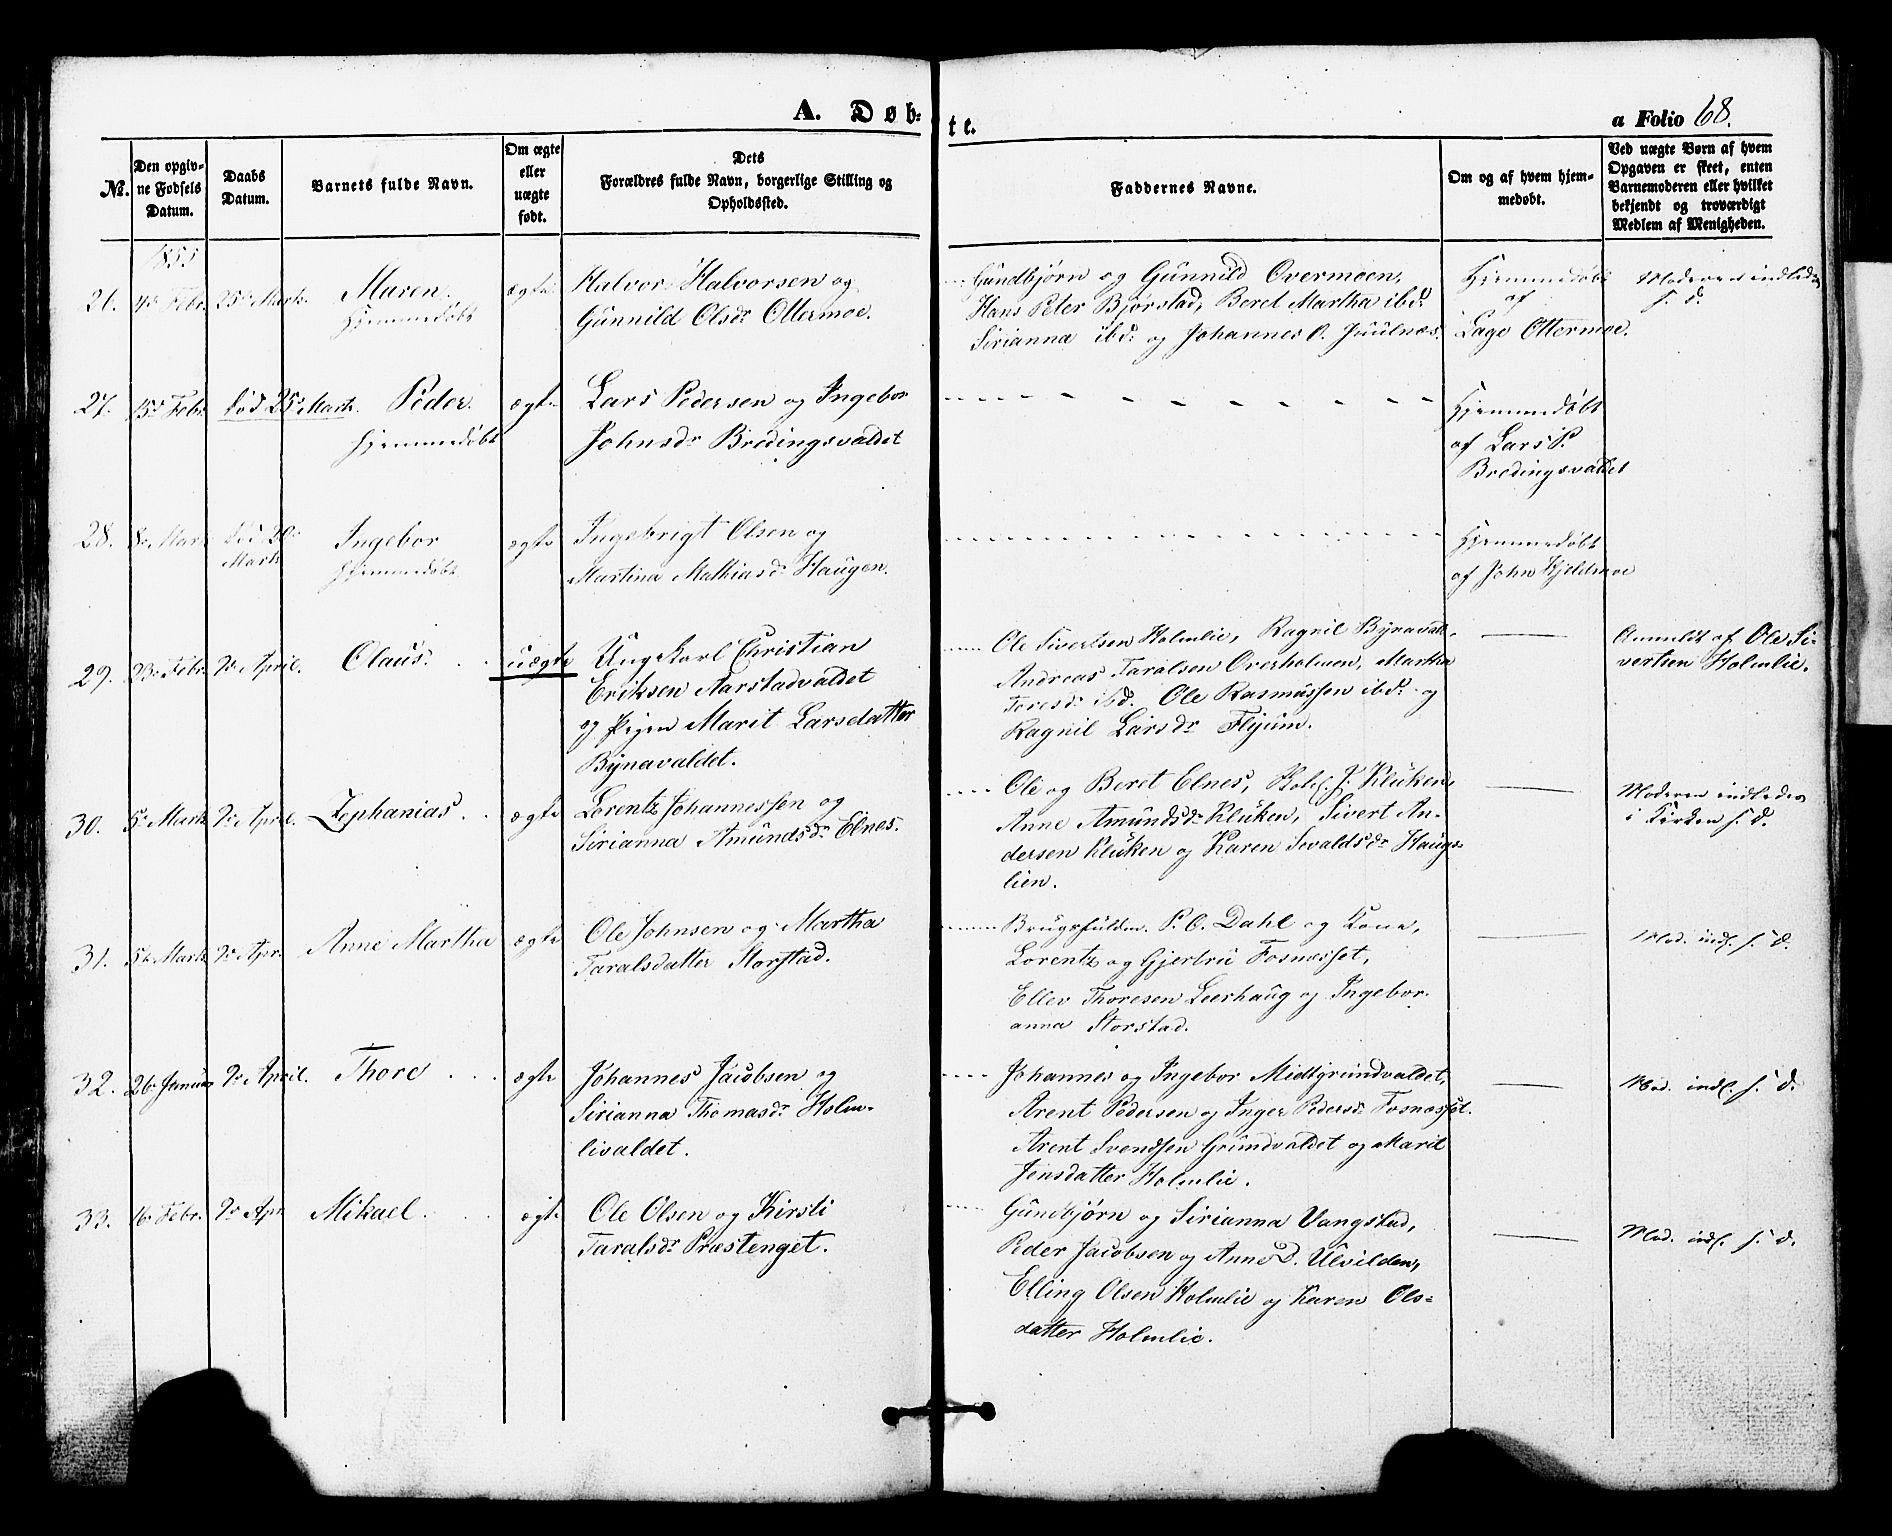 A. Døb=
te.
a Folio 68.
№.
Den opgiv-
ne Fødsels
Datum.
Daabs
Datum.
Barnets fulde Navn.
Om ægte
eller
uægte
født.
Dets
Forældres fulde Navn, borgerlige Stilling og
Opholdssted.
Faddernes Navne.
Om og af hvem hjem-
medøbt.
Ved uægte Børn af hvem
Opgaven er skeet, enten
Barnemoderen eller hvilket
bekjendt og troværdigt
Medlem af Menigheden.
1855
26. 4de Febr. 25de Marts. Maren. ægte
Hjemmedøbt
Halvor Halvorsen og
Gunnild Olsdr Ottermoe.
Gundbjørn og Gunnild Overmoen,
Hans Peter Bjørstad, Beret Martha ibd:
Sirianna ibd: og Johannes O. Juulnæs.
Hjemmedøbt
af
Lage Ottermoe.
Moderen indledes
s. d.
27. 15de Febr. død 25de Marts. Peder. ægte
Hjemmedøbt
Lars Pedersen og Ingebor
Johnsdr Bredingsvaldet
Hjemmedøbt
af Lars P.
Bredingsvaldet
28. 8de Marts død 20de
Marts Ingebor ægte
Hjemmedøbt
Ingebrigt Olsen og
Martina Mathiasdr Haugen.
Hjemmedøbt
af John Kjeldmoe
29. 23de Febr. 9de April. Claus. uægte
Ungekarl Christian
Eriksen Aarstadvaldet
og Pigen Marit Larsdatter
Bynavaldet.
Ole Sivertsen Holmlie, Ragnil Bynavald.
Andreas Taralsen Overholmen, Martha
Toresdr ibd. Ole Rasmussen ibd: og
Ragnil Larsdr Flyum.
Anmeldt af Ole Si-
vertsen Holmlie.
30. 5te Marts 9de April. Zephanias. ægte
Lorentz Johannessen og
Sirianna Amundsdr Elnes.
Ole og Beret Elnes, J. Kluken,
Anne Amundsdr Kluken, Sivert An-
dersen Kluken og Karen Sivaldsdr Haugs-
lien.
Moderen indledes
i Kirken s. d.
31. 5te Marts 9de Apr. Anne Martha ægte
Ole Johnsen og Martha
Taralsdatter Storstad.
P. O. Dahl og Kone,
Lorentz og Gjertru Fosnæsset,
Ellev Thoresen Leerhaug og Ingebor-
anna Storstad.
Mod. indl. s. d.
32. 26de Januar 9de April. Thore ægte
Johannes Jacobsen og
Sirianna Thomasdr Holm-
livaldet.
Johannes og Ingebor Midtgrundvaldet,
Arent Pedersen og Inger Pedersdr Fosnæsset.
Arent Svendsen Grundvaldet og Marit
Jensdatter Holmlie.
Mod. indl. s. d.
33. 16de Febr. 9de Apr. Mikael. ægte
Ole Olsen og Kirsti
Taralsdr Præstenget.
Gundbjørn og Sirianna Vangstad,
Peder Jacobsen og Anne D. Ulvilden,
Elling Olsen Holmlie og Karen Ols-
datter Holmlie.
Mod. indl. s. d.